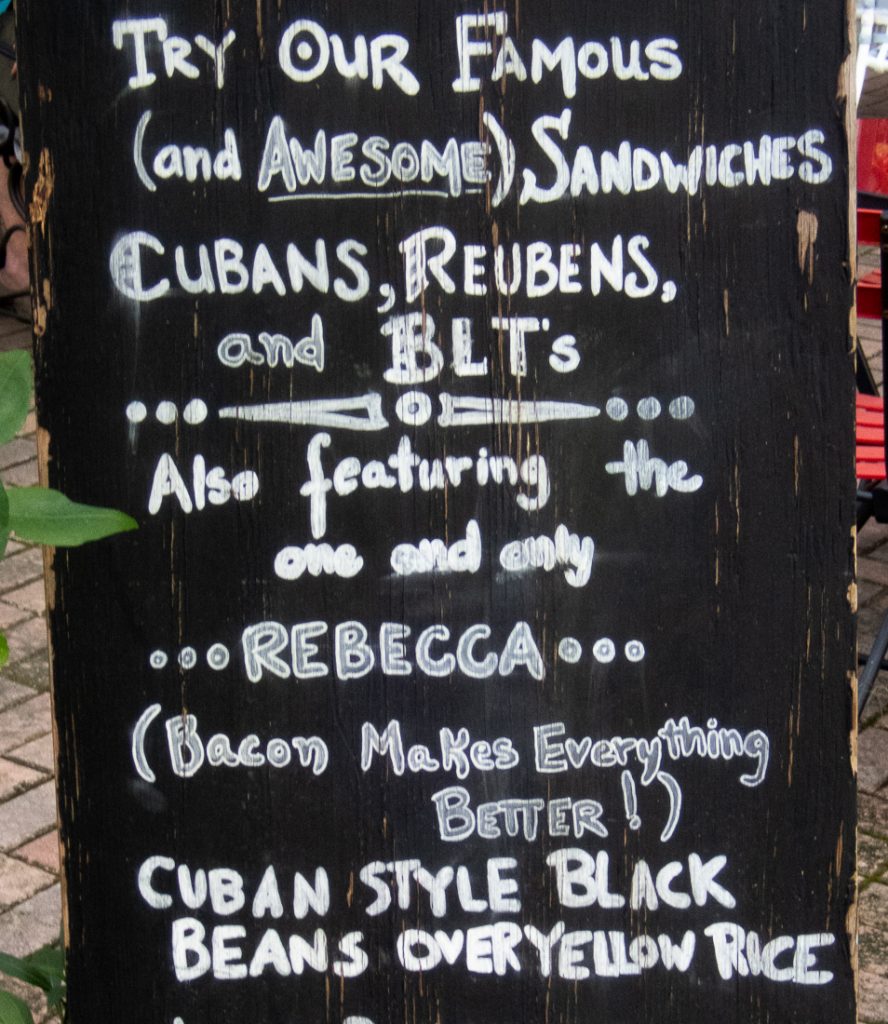 Try Our Famous
(and Awesome), Sandwiches
Cubans, Reubens,
and BLT's
Also featuring the
one and only
...REBECCA...
(Bacon Makes Everything
Better!)
CUBAN STYLE BLACK
BEANS OVER YELLOW RICE